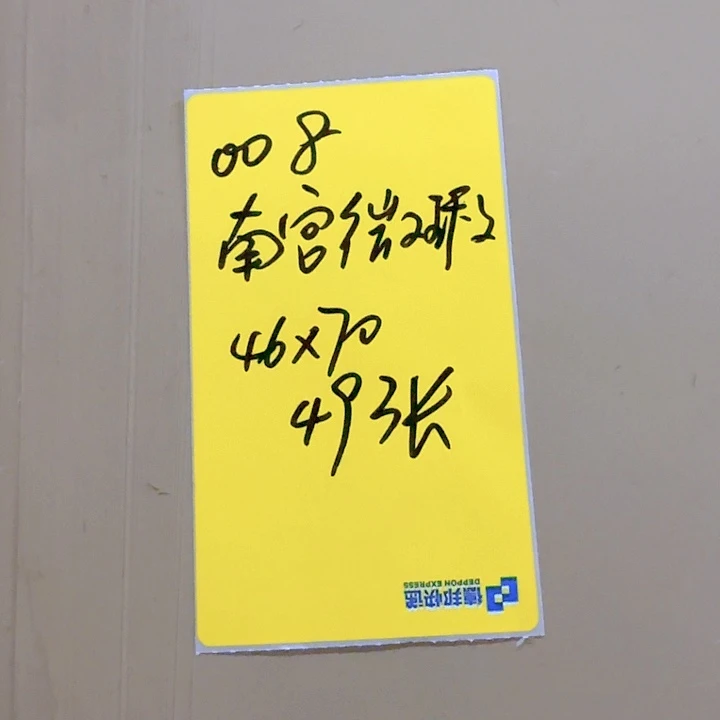 008
南宫微
46×70
49张
德邦快递
DEPPON EXPRESS